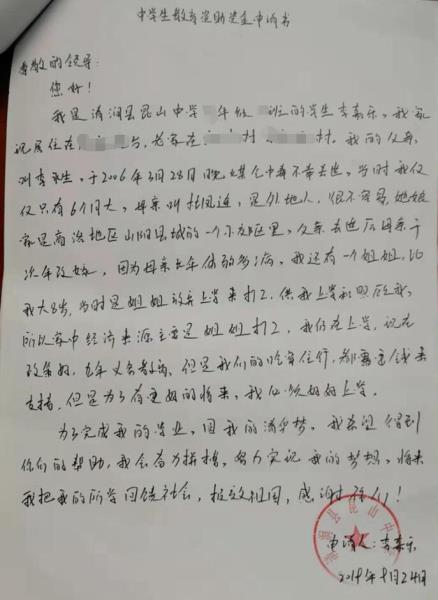 中学生教育资助奖金申请书
尊敬的领导：
您好！
我是清涧县昆山中学 年级 班的学生李嘉乐，我家
现居住在 ，老家在 村 村。我的父亲
叫李 生，于2006年3月28日晚，煤气中毒不幸去世，当时我仅
仅只有6个月大，母亲叫 凤连，是外地人，
家是商洛地区山阳县城的一个小 区里，父亲去世后母亲于
次年改嫁，因为母亲长年体弱多病，我还有一个姐姐，比
我大8岁，当时是姐姐放弃上学来打工，供我上学和照顾我，
所以家中经济来源主要是姐姐打工，我仍在上学，现在
政策好，九年义务教育，但是我们的吃穿住行，都需要钱来
支撑，但是为了有更好的将来，我必须好好上学。
为了完成我的学业，圆我的清华梦，我希望得到
你们的帮助，我会奋力拼搏，努力实现我的梦想，将来
我把我的所学回馈社会，报效祖国，感谢你们！
申请人：李嘉乐
2019年9月24日